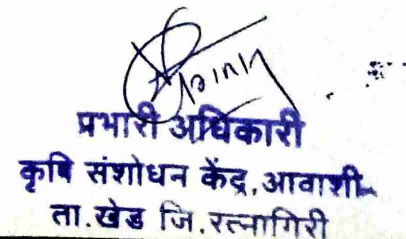 प्रभारी अधिकारी
कृषि संशोधन केंद्र,आवाशी
ता.खेड जि.रत्नागिरी